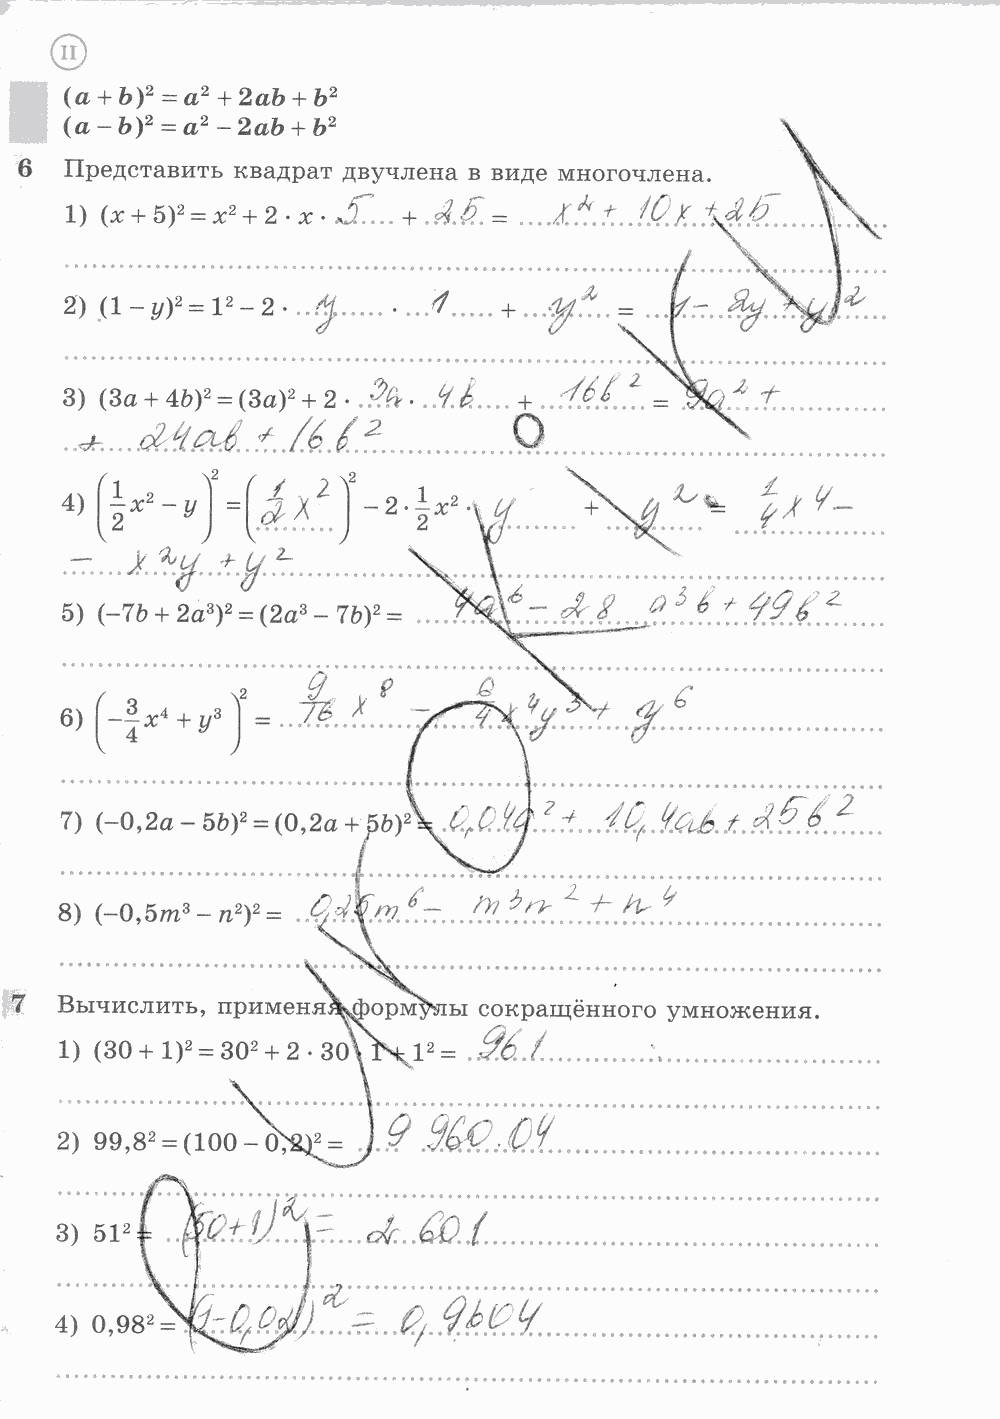 II
(a + b)² = a² + 2ab + b²
(a − b)² = a² − 2ab + b²
6 Представить квадрат двучлена в виде многочлена.
1) (x + 5)² = x² + 2 · x · 5 + 25 = x² + 10x + 25
2) (1 − y)² = 1² − 2 · y · 1 + y² = 1 − 2y + y²
3) (3a + 4b)² = (3a)² + 2 · 3a · 4b + 16b² = 9a² +
+ 24ab + 16b²
4) (1/2 x² − y)² = (1/2 x²)² − 2 · 1/2 x² · y + y² = 1/4 x⁴ −
− x²y + y²
5) (−7b + 2a³)² = (2a³ − 7b)² = 4a⁶ − 28 a³b + 49b²
6) (−3/4 x⁴ + y³)² = 9/16 x⁸ − 6/4 x⁴y³ + y⁶
7) (−0,2a − 5b)² = (0,2a + 5b)² = 0,04a² + 10,4ab + 25b²
8) (−0,5m³ − n²)² = 0,25m⁶ − m³n² + n⁴
7 Вычислить, применяя формулы сокращённого умножения.
1) (30 + 1)² = 30² + 2 · 30 · 1 + 1² = 961
2) 99,8² = (100 − 0,2)² = 9 960.04
3) 51² = (50+1)² = 2 601
4) 0,98² = (1−0,02)² = 0,9604